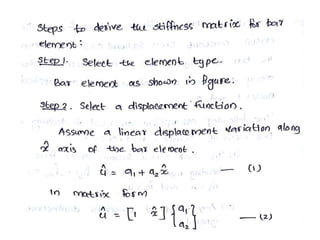 Steps to derive the stiffness matrix for bar
element:
Step 1. Select the element type.
Bar element as shown in figure.
Step 2. Select a displacement function.
Assume a linear displacement variation along
x̂ axis of the bar element.
û = a₁ + a₂x̂ — (1)
In matrix form
û = [1 x̂] {a₁ a₂} — (2)